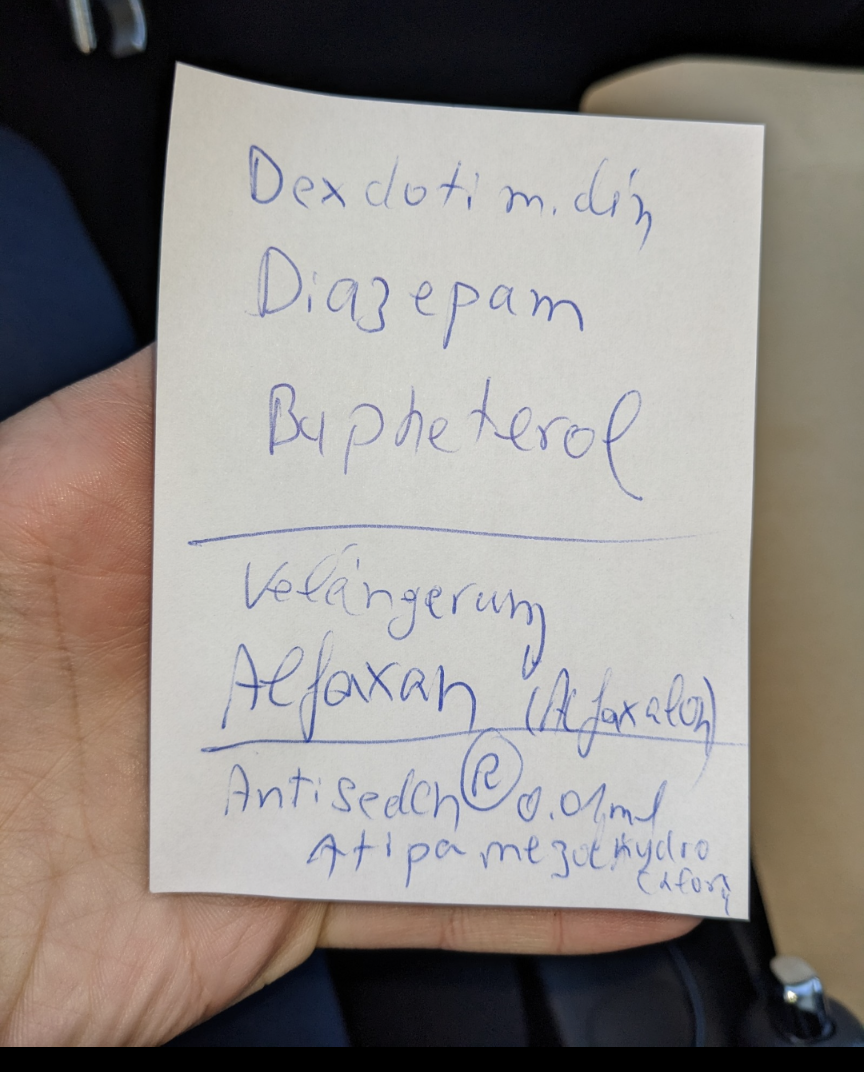 Dexdotim.din
Diazepam
Bupheterol
Velängerung
Alfaxan (Alfaxalon)
Antisedan® 0.01ml
Atipamezolhydro